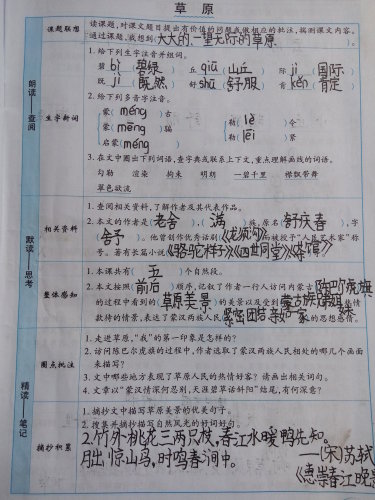 草 原
课题联想
读课题,对课文题目提出有价值的问题或做相应的批注,猜测课文内容。
通过课题,我想到(大大的一望无际的草原)。
朗读——查阅
生字新词
1. 给下列生字注音并组词。
碧 bì (碧绿) 丘 qiū (山丘) 际 jì (国际)
既 jì (既然) 舒 shū (舒服) 肯 kěn (肯定)
2. 给下列多音字注音。
蒙(měng)古
蒙(mēng)骗
启蒙(méng)
勒(lè)令
勒(lēi)紧
3. 在文中圈出下列词语,查字典或联系上下文,重点理解画线的词语。
勾勒 渲染 拘束 明朗 一碧千里 襟飘带舞
翠色欲流
默读——思考
相关资料
1. 查阅相关资料,了解作者及其代表作品。
2. 本文的作者是(老舍),(满)族,原名(舒庆春),字
(舍予)。他曾创作优秀话剧(《龙须沟》)而被授予“人民艺术家”称
号。著有长篇小说《骆驼祥子》《四世同堂》《茶馆》
整体感知
1. 本课共有(五)个自然段。
2. 本文按照(前后)顺序,记叙了作者一行人访问内蒙古陈巴尔虎旗
的过程中看到的(草原美景)的美景以及受到
款待的情景,表达了蒙汉两族人民 的思想感情。
圈点批注
1. 走进草原,“我”的第一印象是怎样的?
2. 访问陈巴尔虎旗的过程中,作者选取了蒙汉两族人民相处的哪几个画面
来描写?
3. 文中哪些地方表现了草原人民的热情好客?请画出相关词句。
4. 文章以“蒙汉情深何忍别,天涯碧草话斜阳”结尾,有何深意?
精读——笔记
摘抄积累
1. 摘抄文中描写草原美景的优美句子。
2. 搜集并摘抄写自然风光的好词好句。
2.竹外桃花三两只枝,春江水暖鸭先知。
月出惊山鸟,时鸣春涧中。
——(宋)苏轼
《惠崇春江晚景》